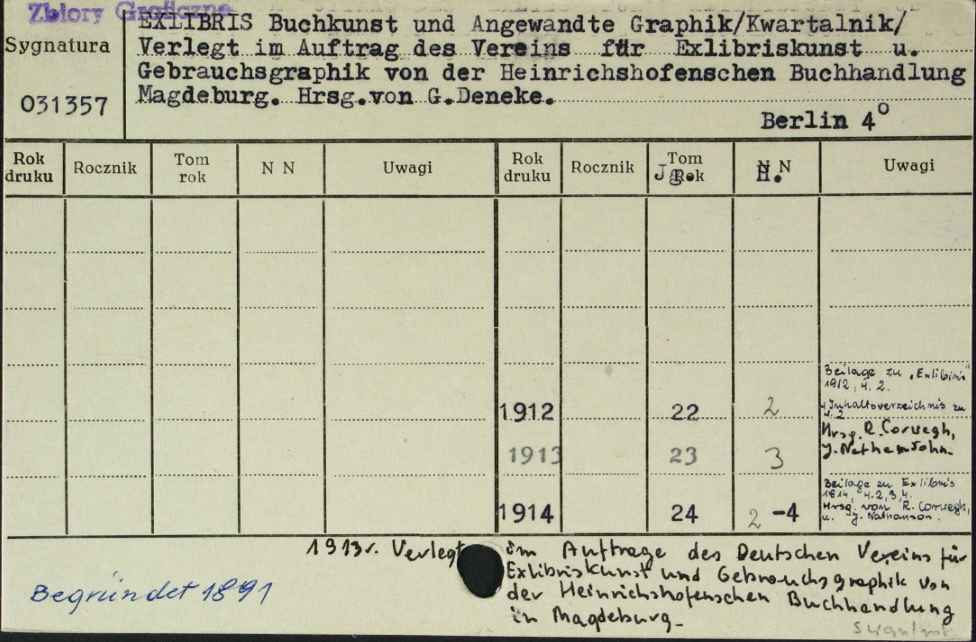 Zbiory Graficzne
EXLIBRIS Buchkunst und Angewandte Graphik/Kwartalnik/
Sygnatura
Verlegt im Auftrag des Vereins für Exlibriskunst u.
Gebrauchsgraphik von der Heinrichshofenschen Buchhandlung
031357
Magdeburg. Hrsg.von G.Deneke.
Berlin 4°
Rok druku Rocznik Tom rok N N Uwagi Rok druku Rocznik Tom Rok Jg. N N H. Uwagi
Beilage zu "Exlibris"
1912, H. 2.
Inhaltsverzeichnis zu
1912 22 2
Hrsg. R. Corwegh,
1913 23 3
Beilage zu Exlibris
1914, H.2,3,4.
Hrsg. von R. Corwegh,
1914 24 2-4
u. J. Nathanson.
1913r. Verlegt im Auftrage des Deutschen Vereins für
Exlibriskunst und Gebrauchsgraphik von
der Heinrichshofenschen Buchhandlung
in Magdeburg.
Begründet 1891